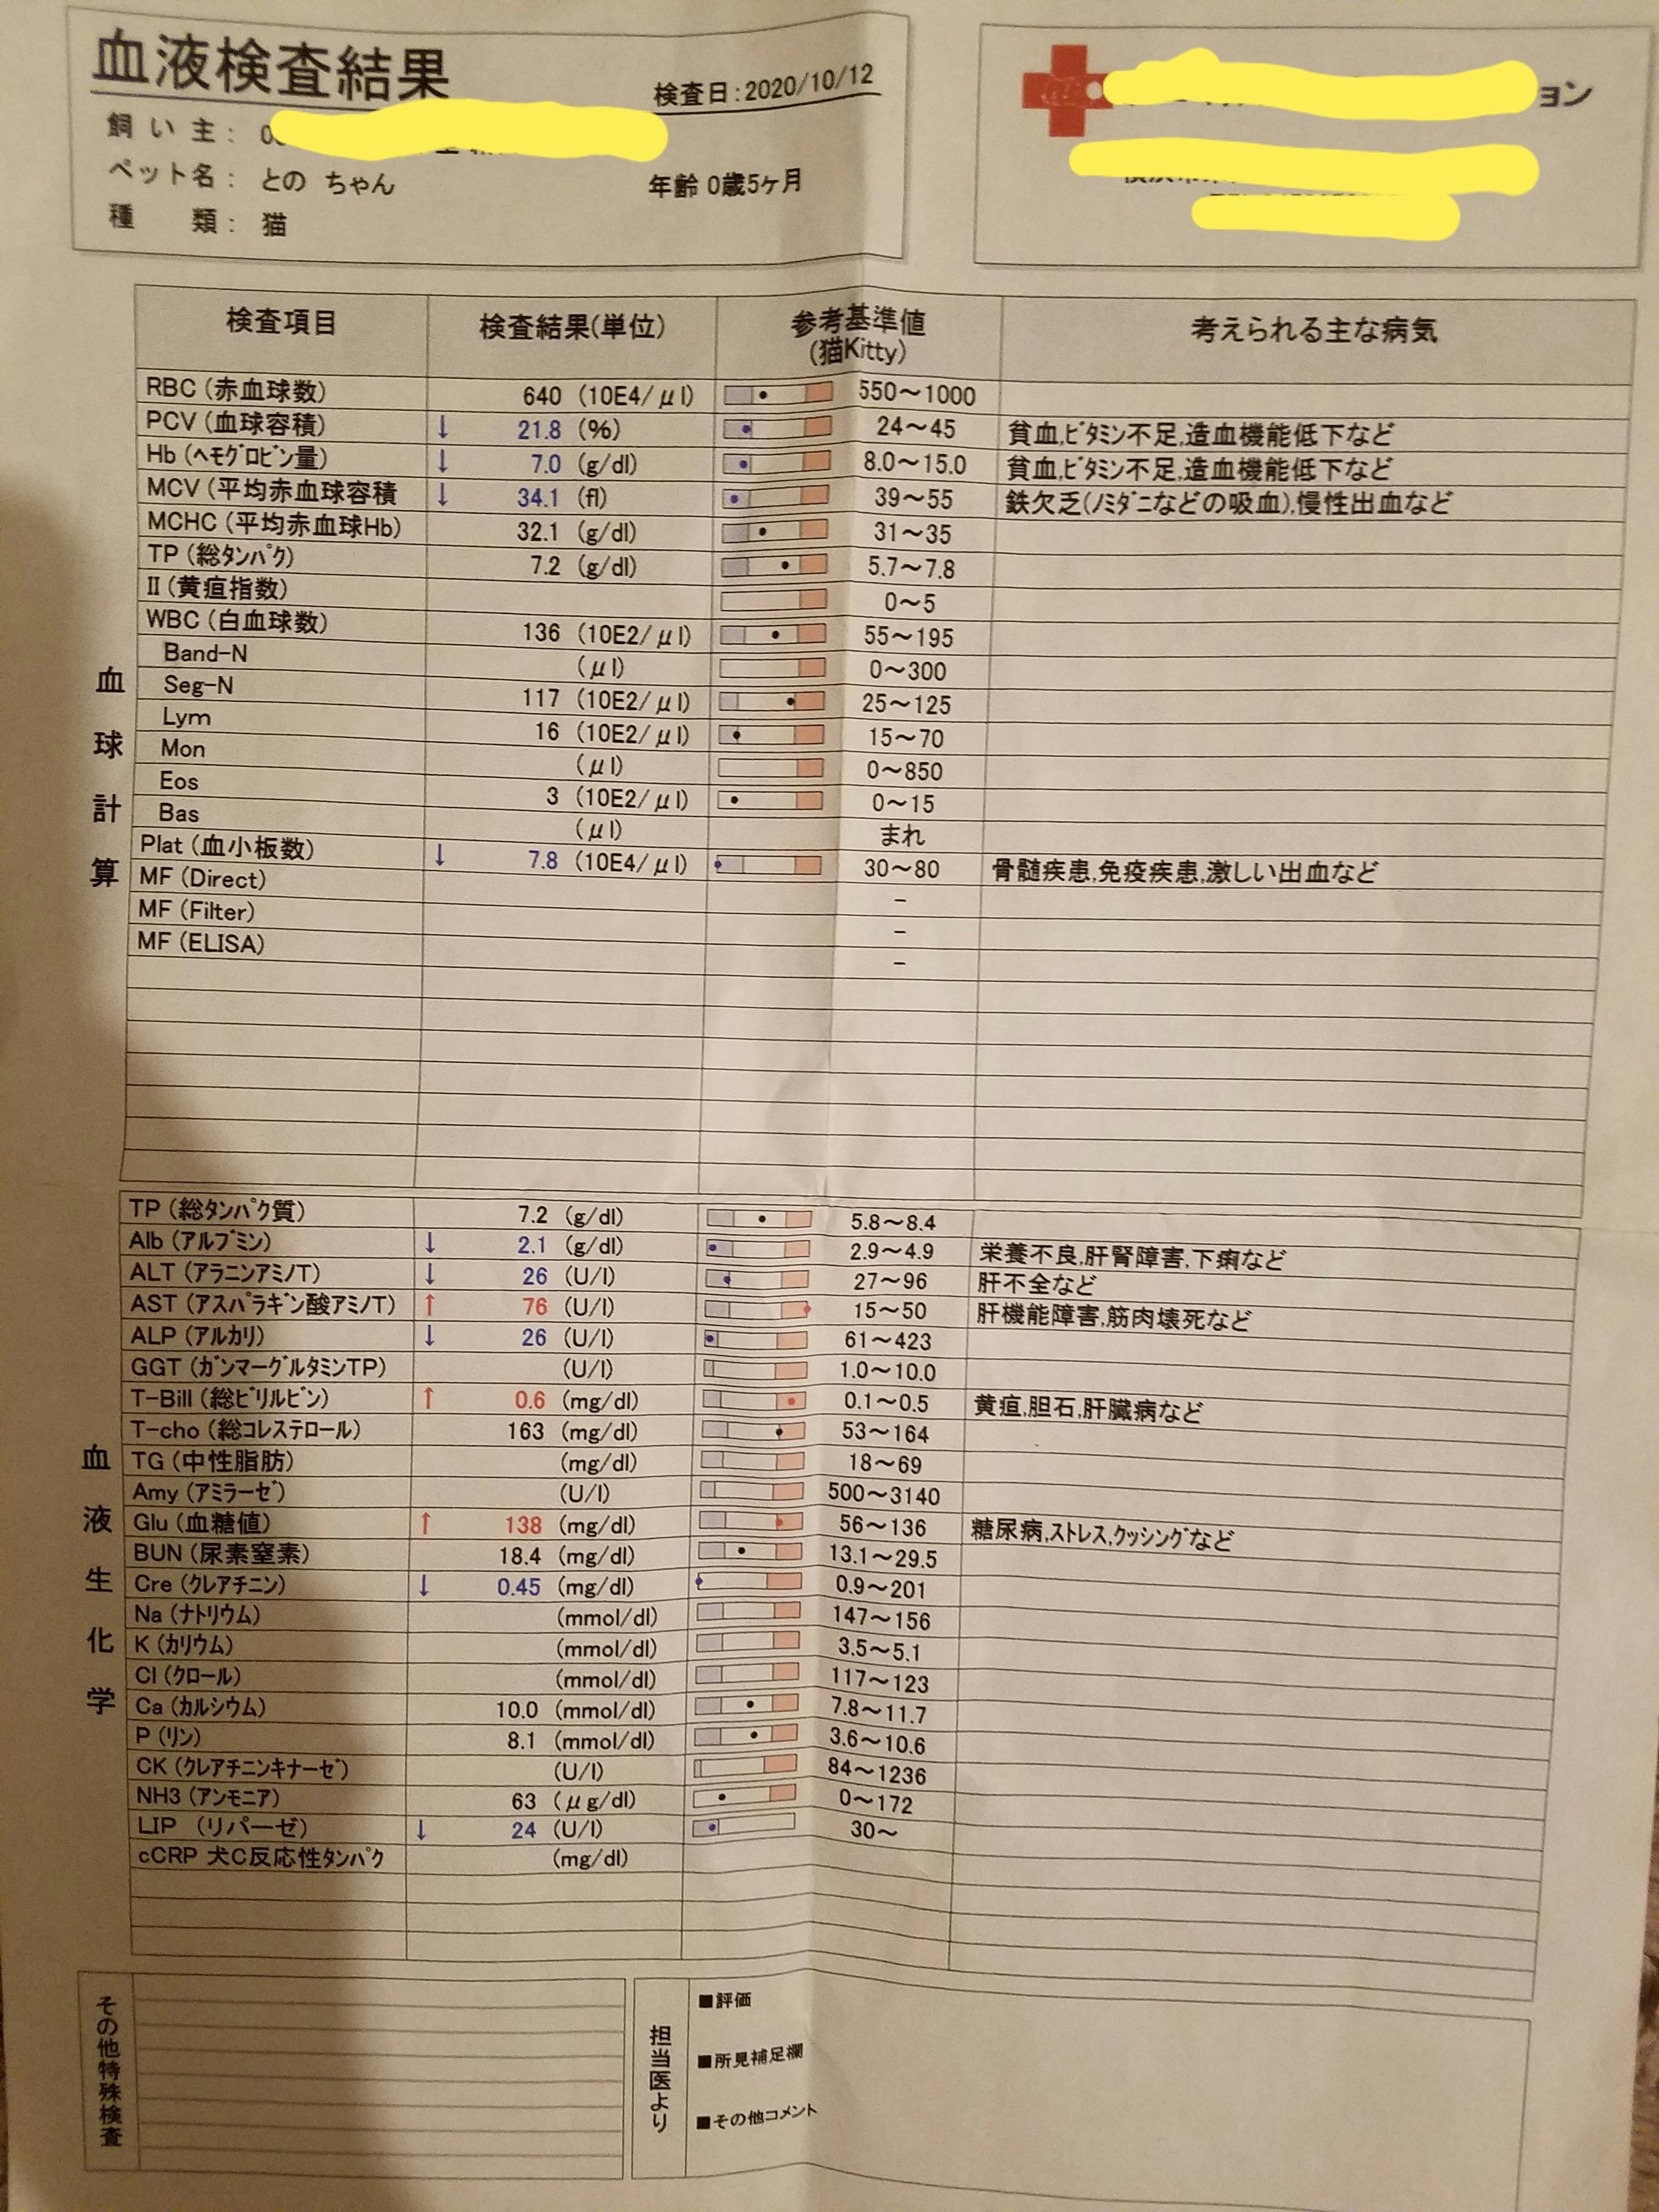 血液検査結果
検査日:2020/10/12
ョン
飼い主:
ペット名: との ちゃん 年齢 0歳5ヶ月
種 類: 猫
検査項目 検査結果(単位) 参考基準値 (猫Kitty) 考えられる主な病気
血球計算
RBC (赤血球数) 640 (10E4/μl) 550～1000
PCV (血球容積) ↓ 21.8 (%) 24～45 貧血,ビタミン不足,造血機能低下など
Hb (ヘモグロビン量) ↓ 7.0 (g/dl) 8.0～15.0 貧血,ビタミン不足,造血機能低下など
MCV (平均赤血球容積 ↓ 34.1 (fl) 39～55 鉄欠乏(ノミダニなどの吸血),慢性出血など
MCHC (平均赤血球Hb) 32.1 (g/dl) 31～35
TP (総タンパク) 7.2 (g/dl) 5.7～7.8
II (黄疸指数) 0～5
WBC (白血球数) 136 (10E2/μl) 55～195
Band-N (μl) 0～300
Seg-N 117 (10E2/μl) 25～125
Lym 16 (10E2/μl) 15～70
Mon (μl) 0～850
Eos 3 (10E2/μl) 0～15
Bas (μl) まれ
Plat (血小板数) ↓ 7.8 (10E4/μl) 30～80 骨髄疾患,免疫疾患,激しい出血など
MF (Direct) -
MF (Filter) -
MF (ELISA) -
血液生化学
TP (総タンパク質) 7.2 (g/dl) 5.8～8.4
Alb (アルブミン) ↓ 2.1 (g/dl) 2.9～4.9 栄養不良,肝腎障害,下痢など
ALT (アラニンアミノT) ↓ 26 (U/l) 27～96 肝不全など
AST (アスパラギン酸アミノT) ↑ 76 (U/l) 15～50 肝機能障害,筋肉壊死など
ALP (アルカリ) ↓ 26 (U/l) 61～423
GGT (ガンマーグルタミンTP) (U/l) 1.0～10.0
T-Bill (総ビリルビン) ↑ 0.6 (mg/dl) 0.1～0.5 黄疸,胆石,肝臓病など
T-cho (総コレステロール) 163 (mg/dl) 53～164
TG (中性脂肪) (mg/dl) 18～69
Amy (アミラーゼ) (U/l) 500～3140
Glu (血糖値) ↑ 138 (mg/dl) 56～136 糖尿病,ストレス,クッシングなど
BUN (尿素窒素) 18.4 (mg/dl) 13.1～29.5
Cre (クレアチニン) ↓ 0.45 (mg/dl) 0.9～201
Na (ナトリウム) (mmol/dl) 147～156
K (カリウム) (mmol/dl) 3.5～5.1
Cl (クロール) (mmol/dl) 117～123
Ca (カルシウム) 10.0 (mmol/dl) 7.8～11.7
P (リン) 8.1 (mmol/dl) 3.6～10.6
CK (クレアチニンキナーゼ) (U/l) 84～1236
NH3 (アンモニア) 63 (μg/dl) 0～172
LIP (リパーゼ) ↓ 24 (U/l) 30～
cCRP 犬C反応性タンパク (mg/dl)
その他特殊検査
担当医より
■評価
■所見補足欄
■その他コメント